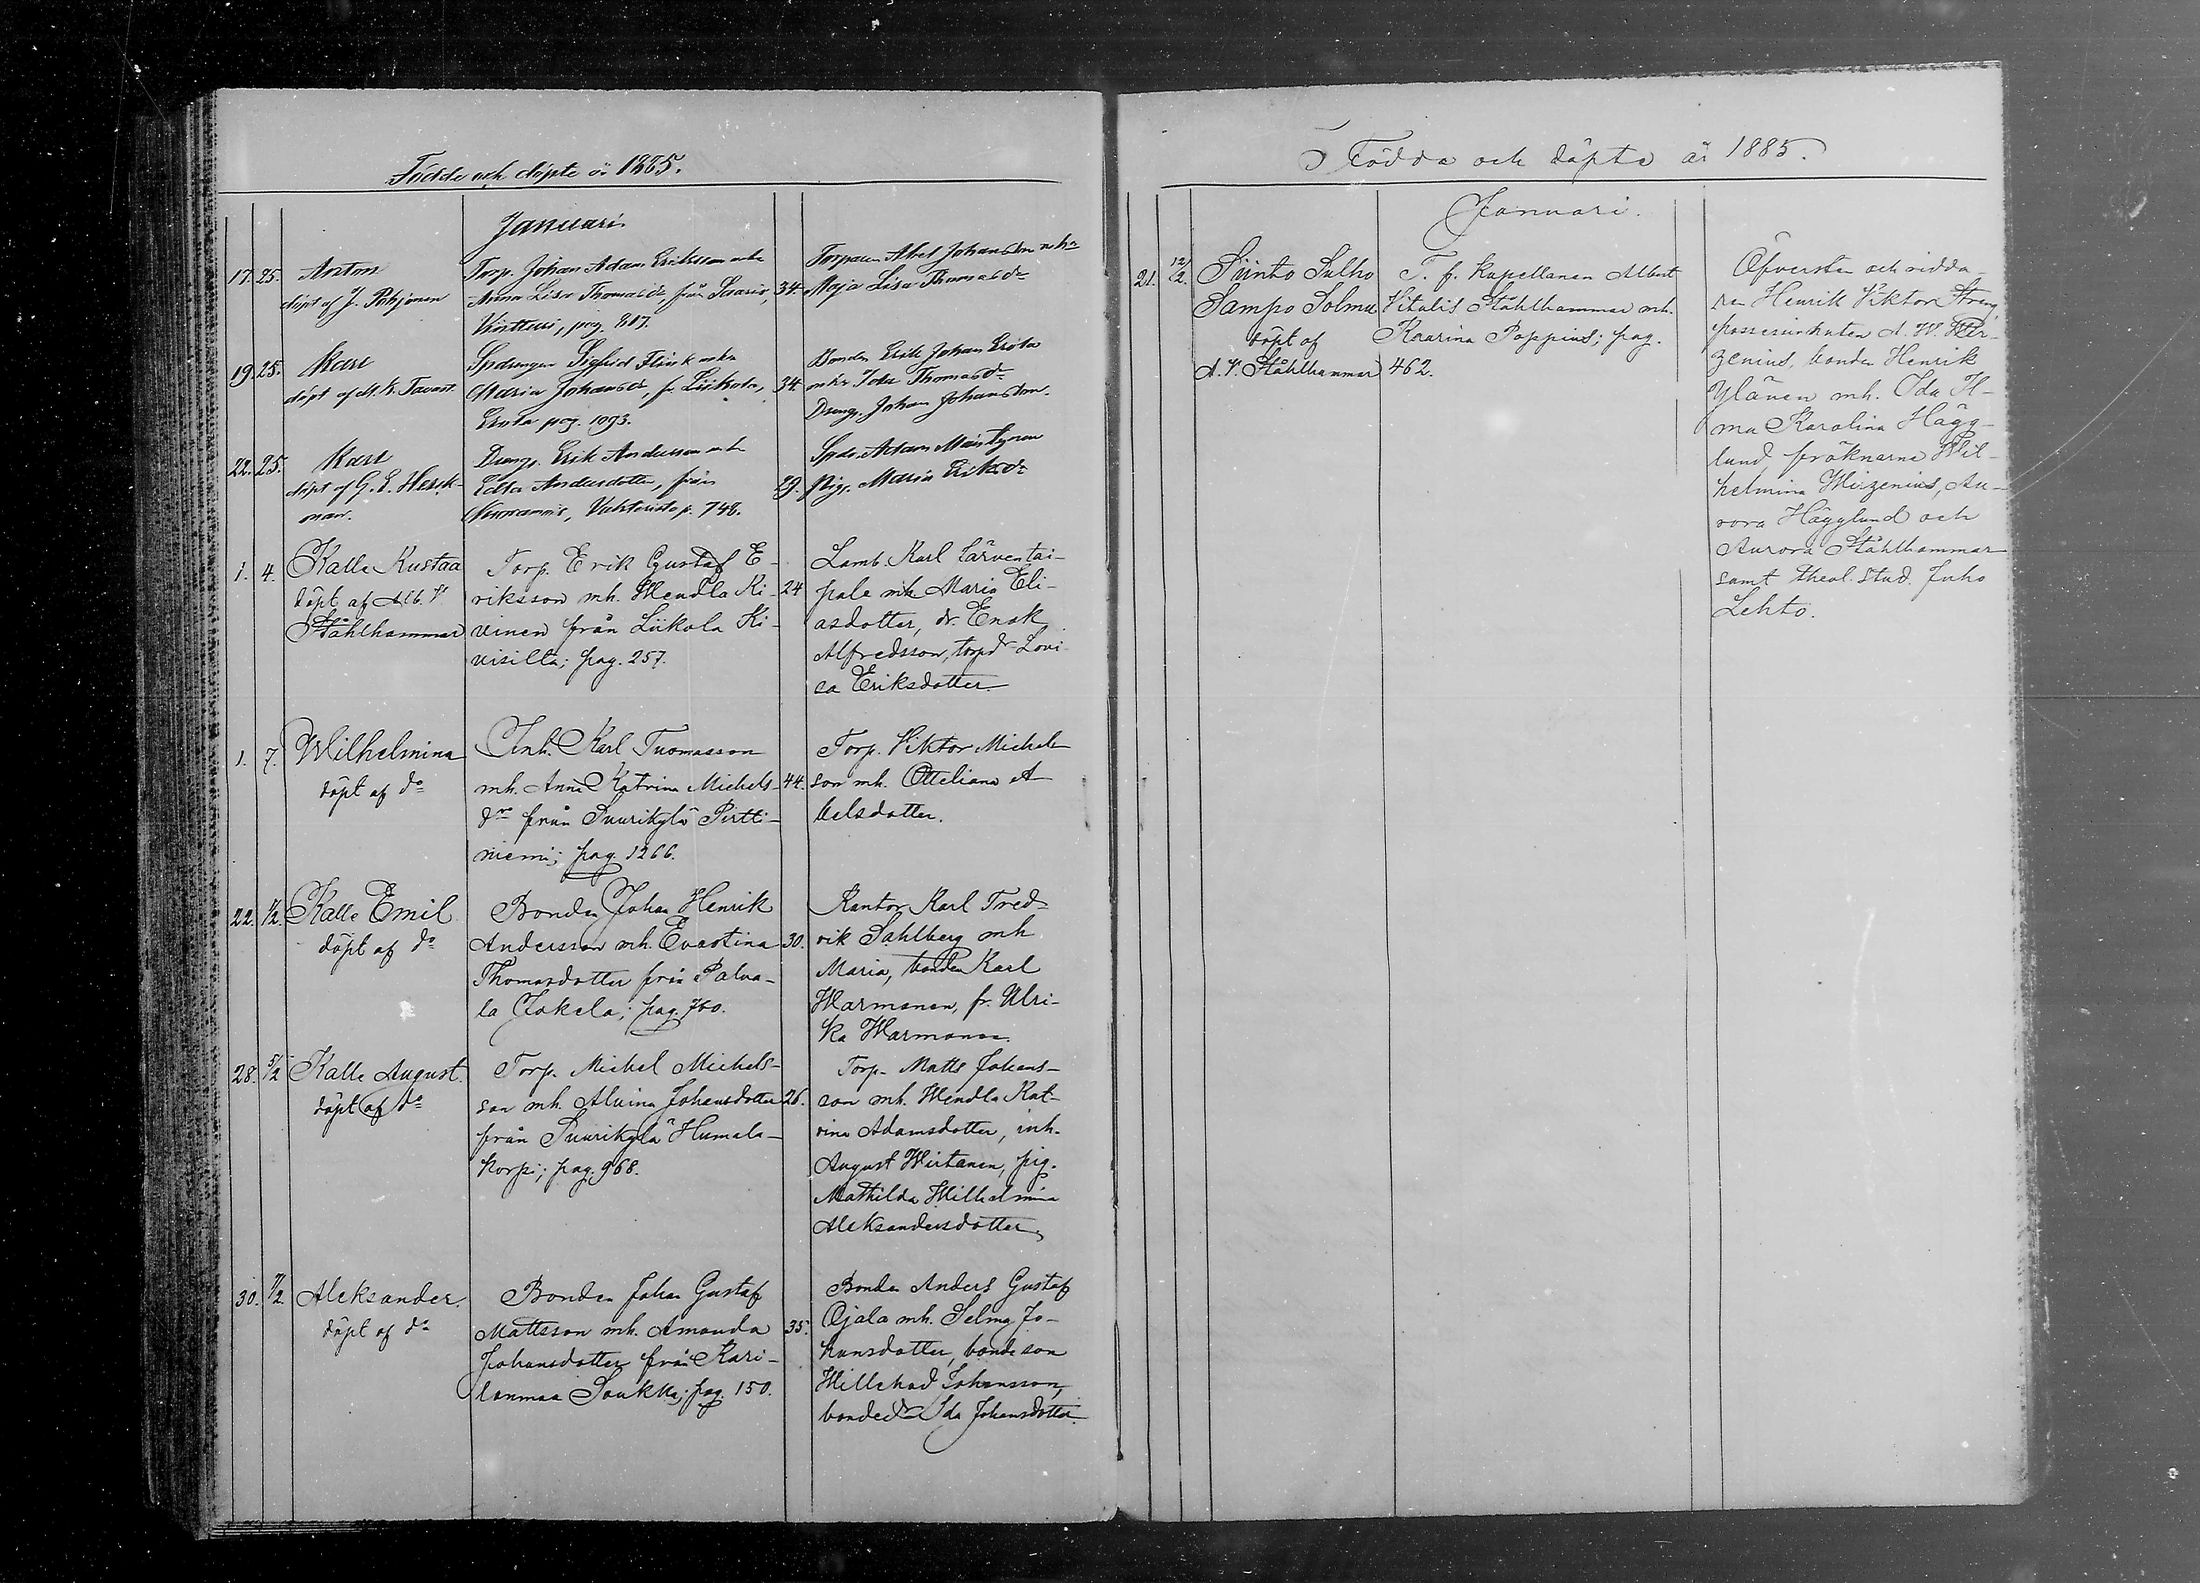 Födde och döpte år 1885.
Januari
17. 25. Anton
döpt af J. Pohjonen
Torp. Johan Adam Eriksson mhu
Anna Lisa Thomasdr, från Saario,
pag. 807.
34.
Torparen Abel Johansson mhu
Maja Lisa Thomasdr
19. 25. Karl
döpt af M. K. Tavast.
Spdrengen Sigfrid Flink mhu
Maria Johansdr, fr. Liikola,
Erola pag. 1093.
34.
Bonden Erik Johan Erola
mhu Ida Thomasdr
Dreng. Johan Johansson.
22. 25. Karl
döpt af G. E. Herck-
man.
Dreng. Erik Andersson mhu
Edla Andersdotter, från
p. 748.
29.
Spdr. Adam Mäntynen
Pig. Maria Eriksdr
1. 4. Kalle Kustaa
döpt af Alb. V.
Ståhlhammar
Torp. Erik Gustaf E-
riksson mh. Hendla Ki-
vinen från Liikola Ki-
visilta; pag. 257.
24
Lamb. Karl Tärventai-
pale mh. Maria Eli-
asdotter, dr. Enok
Alfredsson, torpdr Lovi-
sa Eriksdotter
1. 7. Wilhelmina
döpt af do
Inh. Karl Tuomasson
mh. Anna Katrina Michels-
dr från Suurikylä Pirtti-
niemi; pag. 1266.
44.
Torp. Viktor Michels-
son mh. Otteliana A-
belsdotter.
22. 1/2. Kalle Emil
döpt af do
Bonden Johan Henrik
Andersson mh. Evastina
Thomasdotter från Palva-
la Jokela; pag. 760.
30.
Kantor Karl Fred-
rik Sahlberg mh.
Maria, bonden Karl
Warmanen, fr. Ulri-
ka Warmanen.
28. 5/2 Kalle August.
döpt af do
Torp. Michel Michels-
son mh. Alvina Johansdotter
från Suurikylä Humala-
korpi; pag. 968.
26.
Torp. Matts Johans-
son mh. Wendla Kat-
rina Adamsdotter, inh.
August Wirtanen, pig.
Mathilda Wilhelmina
Aleksandersdotter
30. 7/2. Aleksander.
döpt af do
Bonden Johan Gustaf
Mattsson mh. Amanda
Johansdotter från Kari-
lanmaa Soukka; pag. 150.
35.
Bonden Anders Gustaf
Ojala mh. Selma Jo-
hansdotter, bondeson
Willehad Johansson,
bondedr Ida Johansdotter.
Födda och döpta år 1885.
Januari.
21. 12/2. Siinto Sulho
Sampo Solmu
döpt af
A. V. Ståhlhammar
T. f. Kapellanen Albert
Vitalis Ståhlhammar mh.
Kaarina Poppius; pag.
462.
Öfversten och ridda-
ren Henrik Viktor Streng,
possessionaten A. W. Wir-
zenius, bonden Henrik
Yläнen mh. Ida Il-
ma Karolina Hägg-
lund, fröknarna Wil-
helmina Wirzenius, Au-
rora Hägglund och
Aurora Ståhlhammar
samt theol. stud. Juho
Lehto.